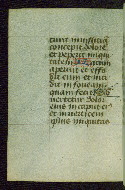 turiit iniusticiā
concepit dolorē
et peperit iniqui
tatem Lacum
aperuit et effo
dit eum et inci
dit in foueam
quam fecit Con
uertetur dolor
eius in caput ei
et in uerticem
ipsius iniquitas